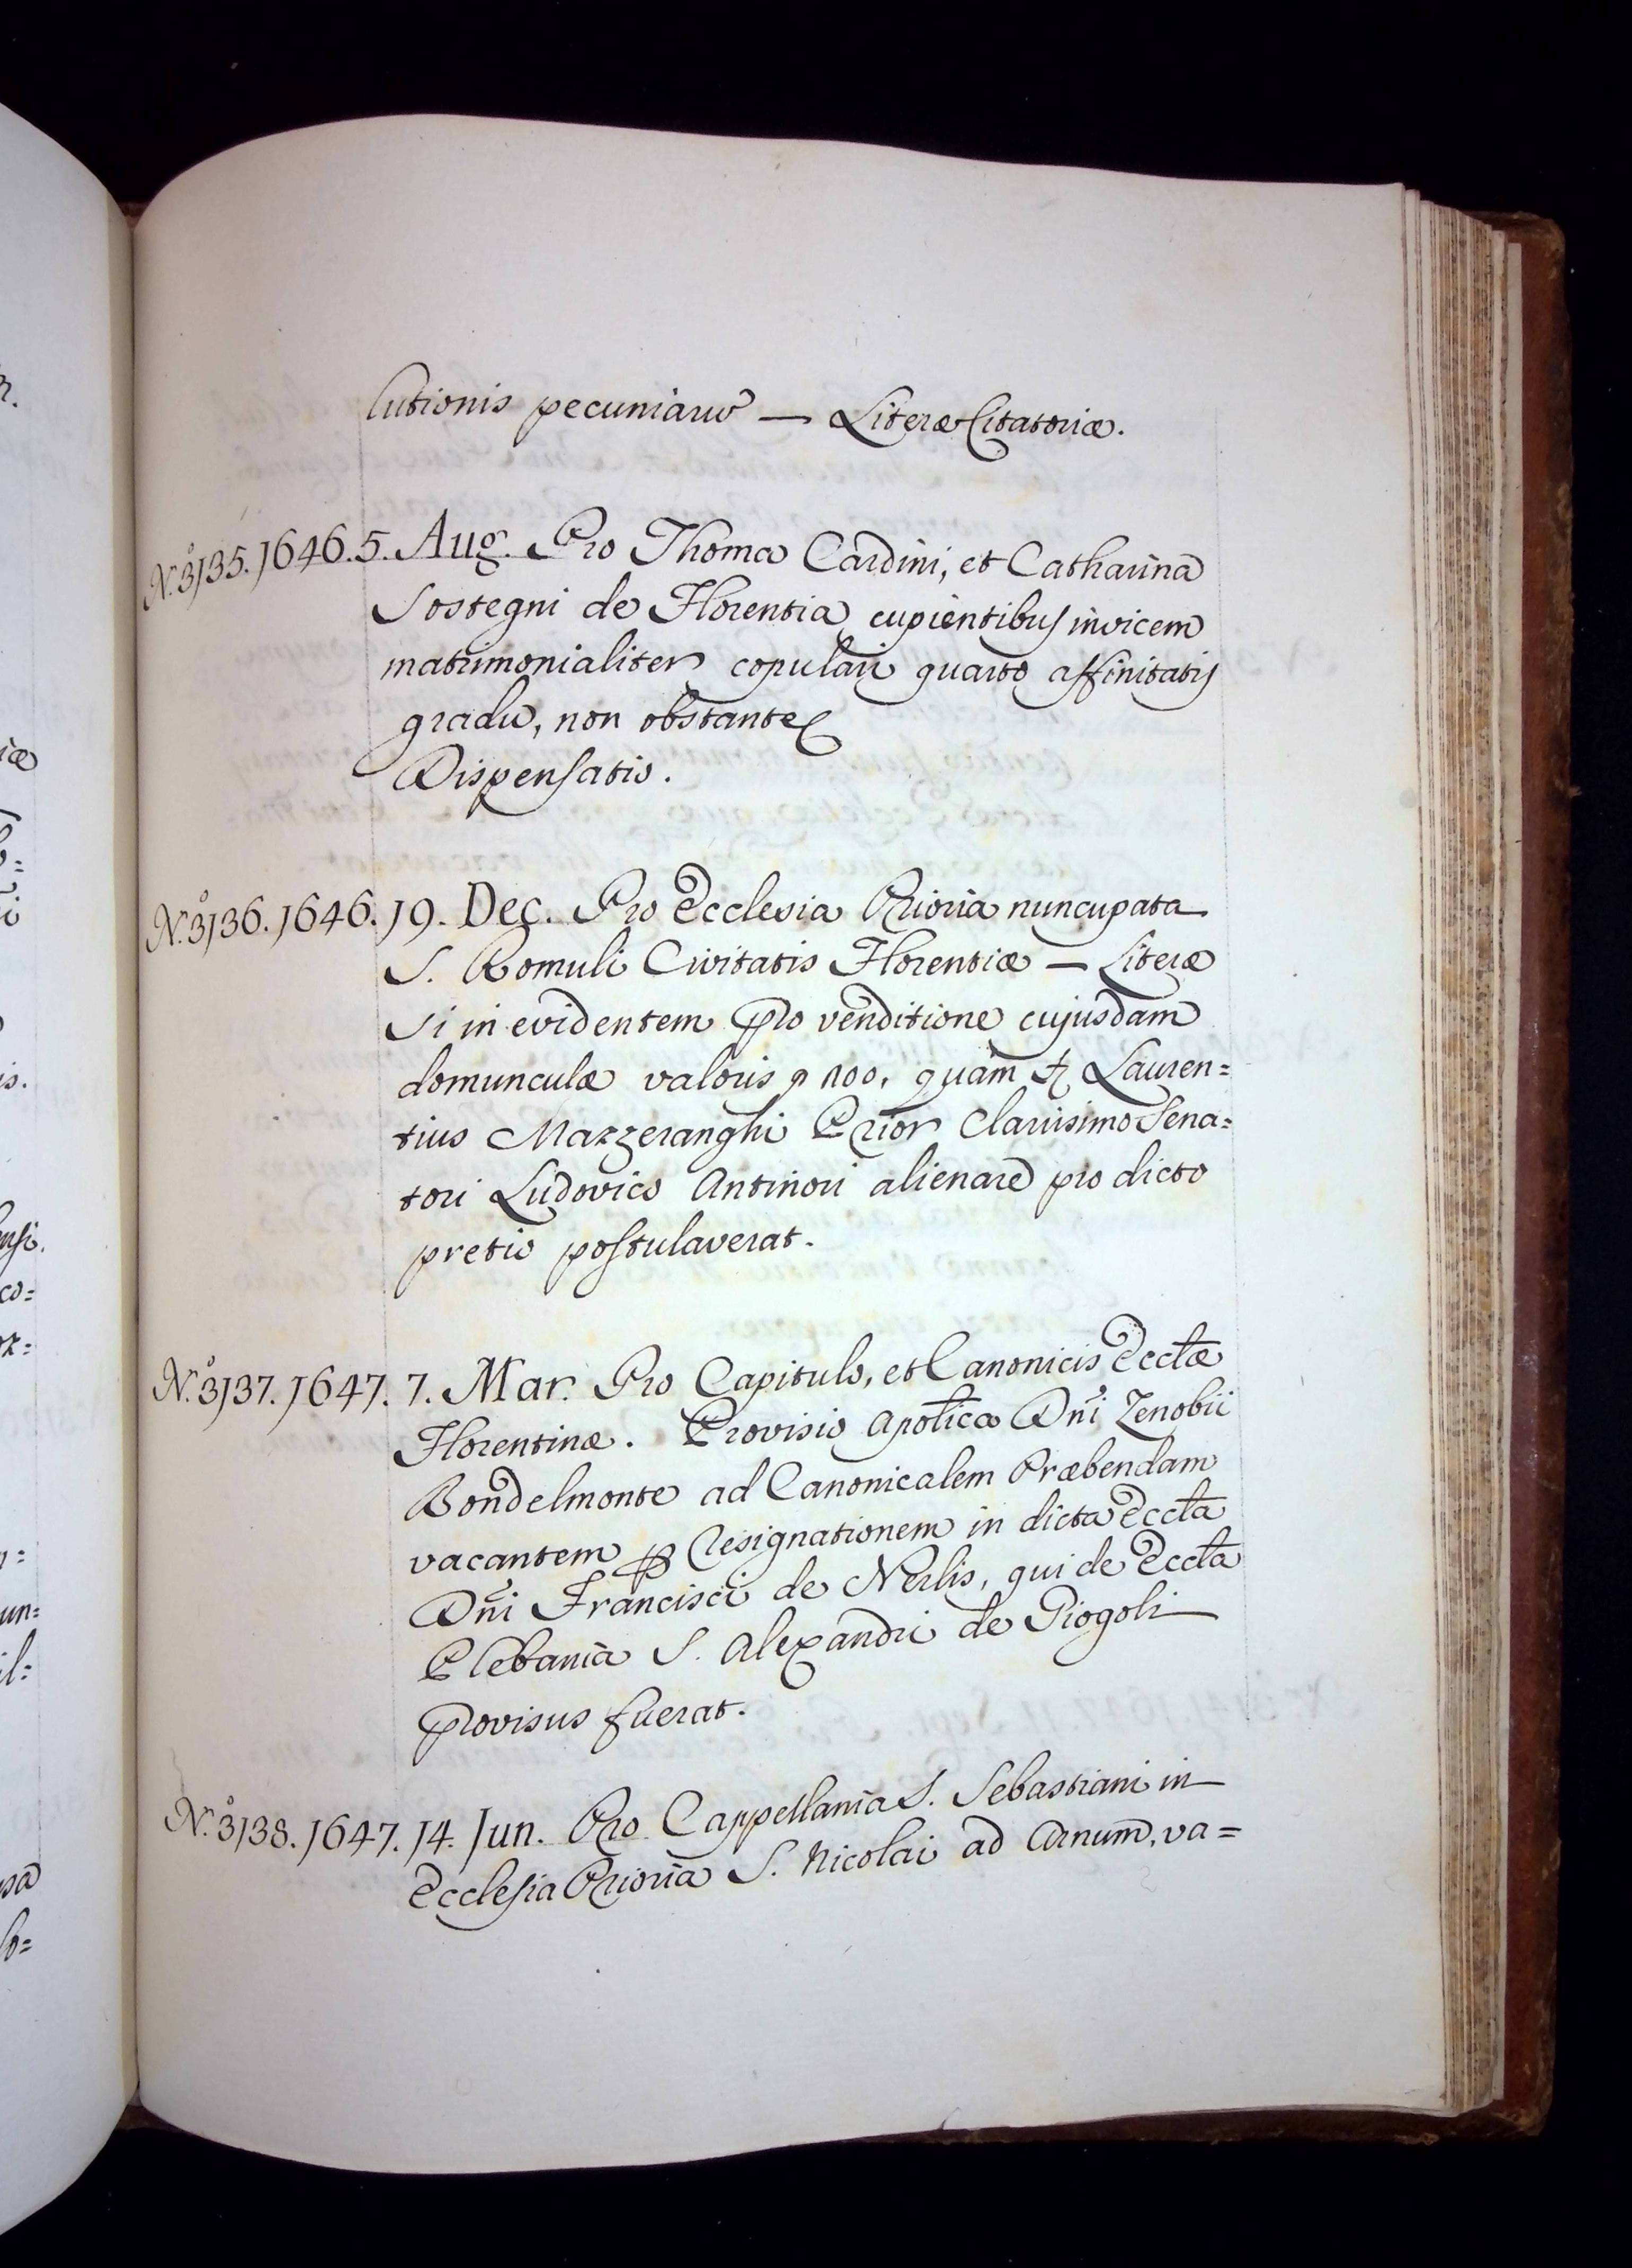 lutionis pecuniarũ — Literæ Citatoriæ.
N.º 3135. 1646. 5. Aug. Pro Thoma Cardini, et Catharina
Sostegni de Florentia cupientibus invicem
matrimonialiter copulari quarto affinitatis
gradu, non obstante
Dispensatio.
N.º 3136. 1646. 19. Dec. Pro Ecclesia Prioria nuncupata
S. Romuli Civitatis Florentiæ — Literæ
Si in evidentem pro venditione cujusdam
domunculæ valoris 100, quam Lauren=
tius Mazzeranghi Prior Clarissimo Sena=
tori Ludovico Antinori alienare pro dicto
pretio postulaverat.
N.º 3137. 1647. 7. Mar. Pro Capitulo, et Canonicis Ecctæ
Florentinæ. Provisio Aptica Dñi Zenobii
Bondelmonte ad Canonicalem Præbendam
vacantem ꝑ Resignationem in dicta Eccta
Dñi Francisci de Nerlis, qui de Eccta
Plebania S. Alexandri de Giogoli
provisus fuerat.
N.º 3138. 1647. 14. Jun. Pro Cappellania S. Sebastiani in
Ecclesia Prioria S. Nicolai ad Arnum, va=